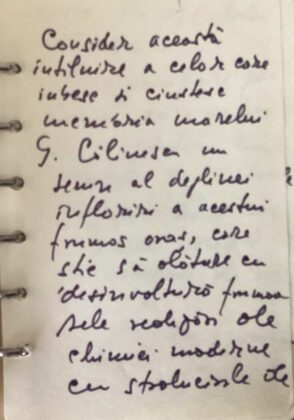 Consider această
întîlnire a celor care
iubesc și cinstesc
memoria marelui
G. Călinescu un
semn al deplinei
înfloriri a acestui
frumos oraș, care
știe să alăture cu
dezinvoltură frumoa
sele realizări ale
chimiei moderne
cu strălucirile de